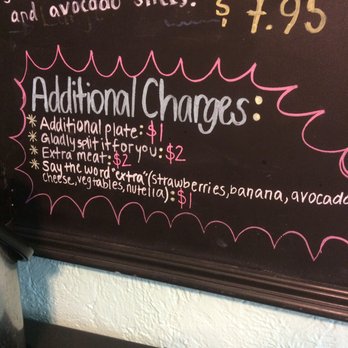 and avocado slices. $7.95
Additional Charges:
* Additional plate: $1
* Gladly split it for you: $2
* Extra meat: $2
* Say the word "extra" (strawberries, banana, avocado
cheese, vegtables, nutella): $1